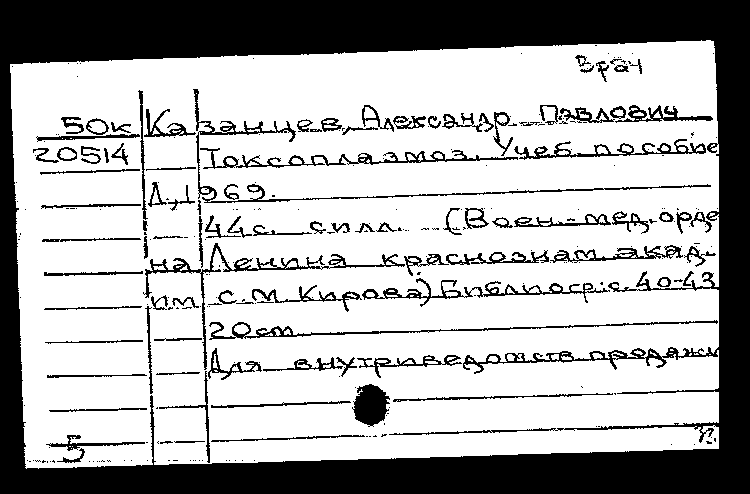 Врач
50к Казанцев, Александр Павлович
20514 Токсоплазмоз. Учеб. пособие
Л., 1969.
44с. с илл. (Воен.-мед. орде
на Ленина краснознам. акад.
им С.М. Кирова) Библиогр: с. 40-43
20см
Для внутриведомств. продажи
5